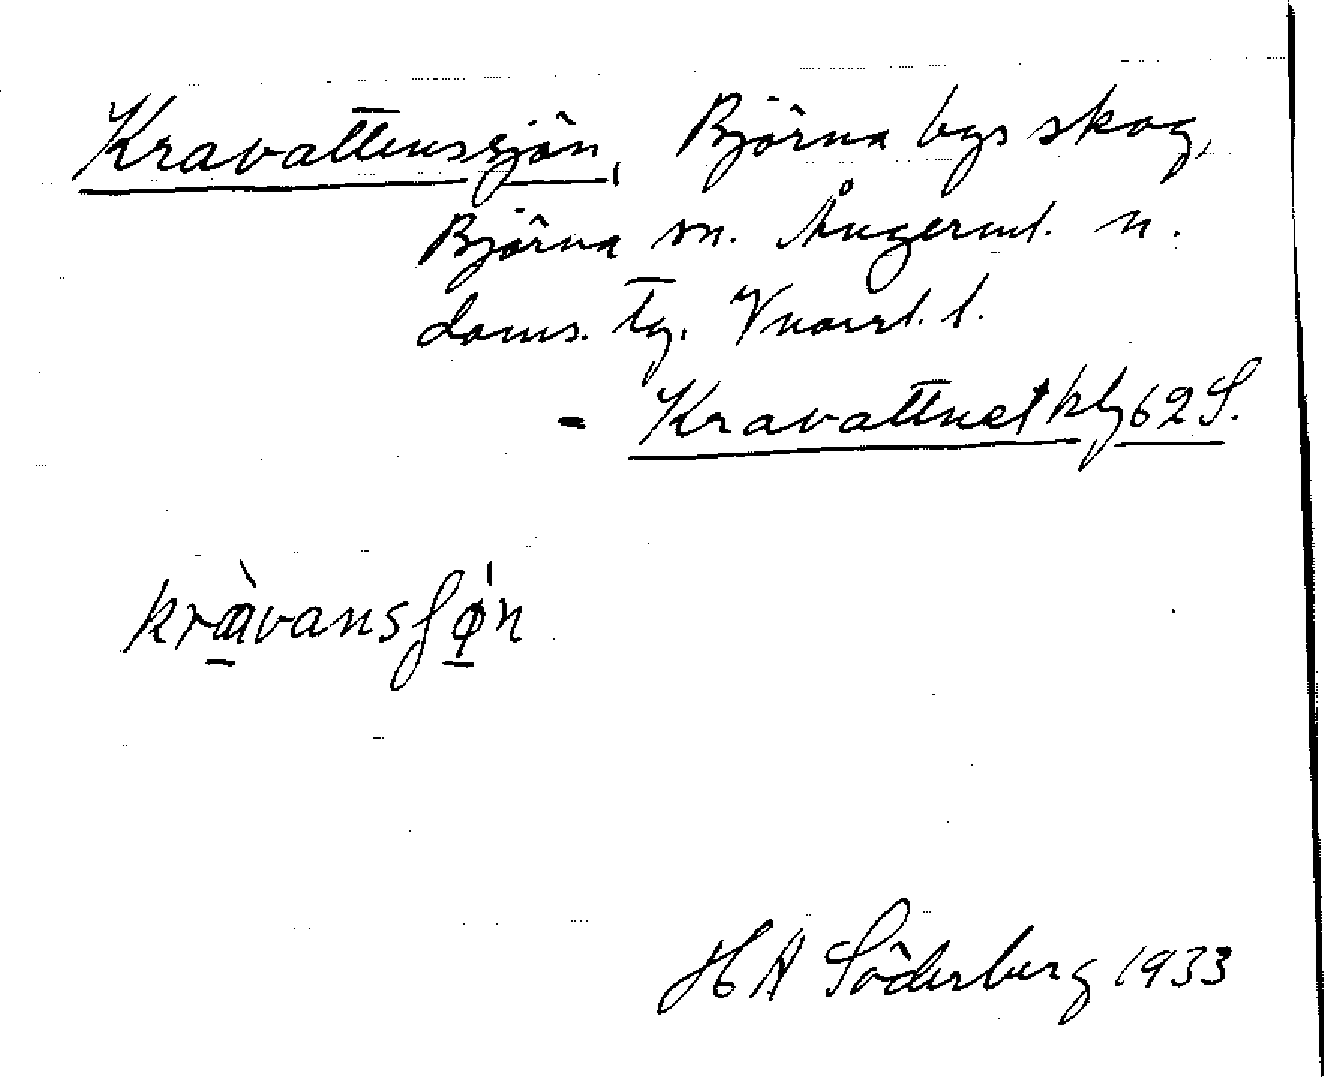 Kravattenssjön, Björna bys skog,
Björna sn. Ångerml. n.
doms. tg. Vnorrl. l.
= Kravattnet kbl 62 S.
kràvansʃø̀n
H A Söderberg 1933